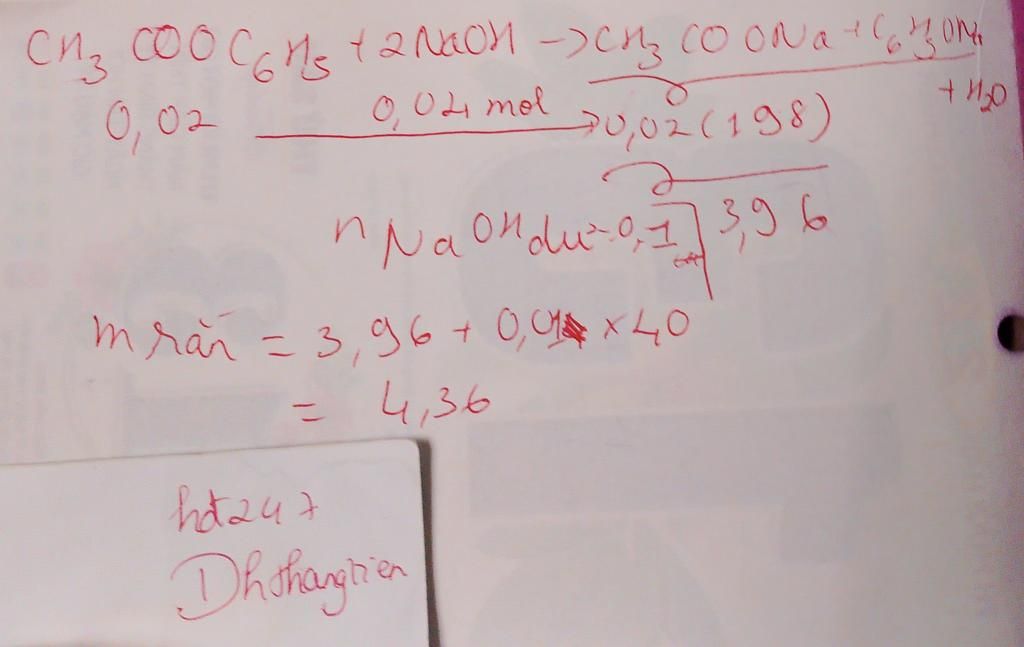 CH3COOC6H5 + 2NaOH -> CH3COONa + C6H5ONa
+ H2O
0,02 0,04 mol 0,02 (198)
nNaOH dư = 0,1 3,96
m rắn = 3,96 + 0,01 x 40
= 4,36
hdt247
Dhthangtien